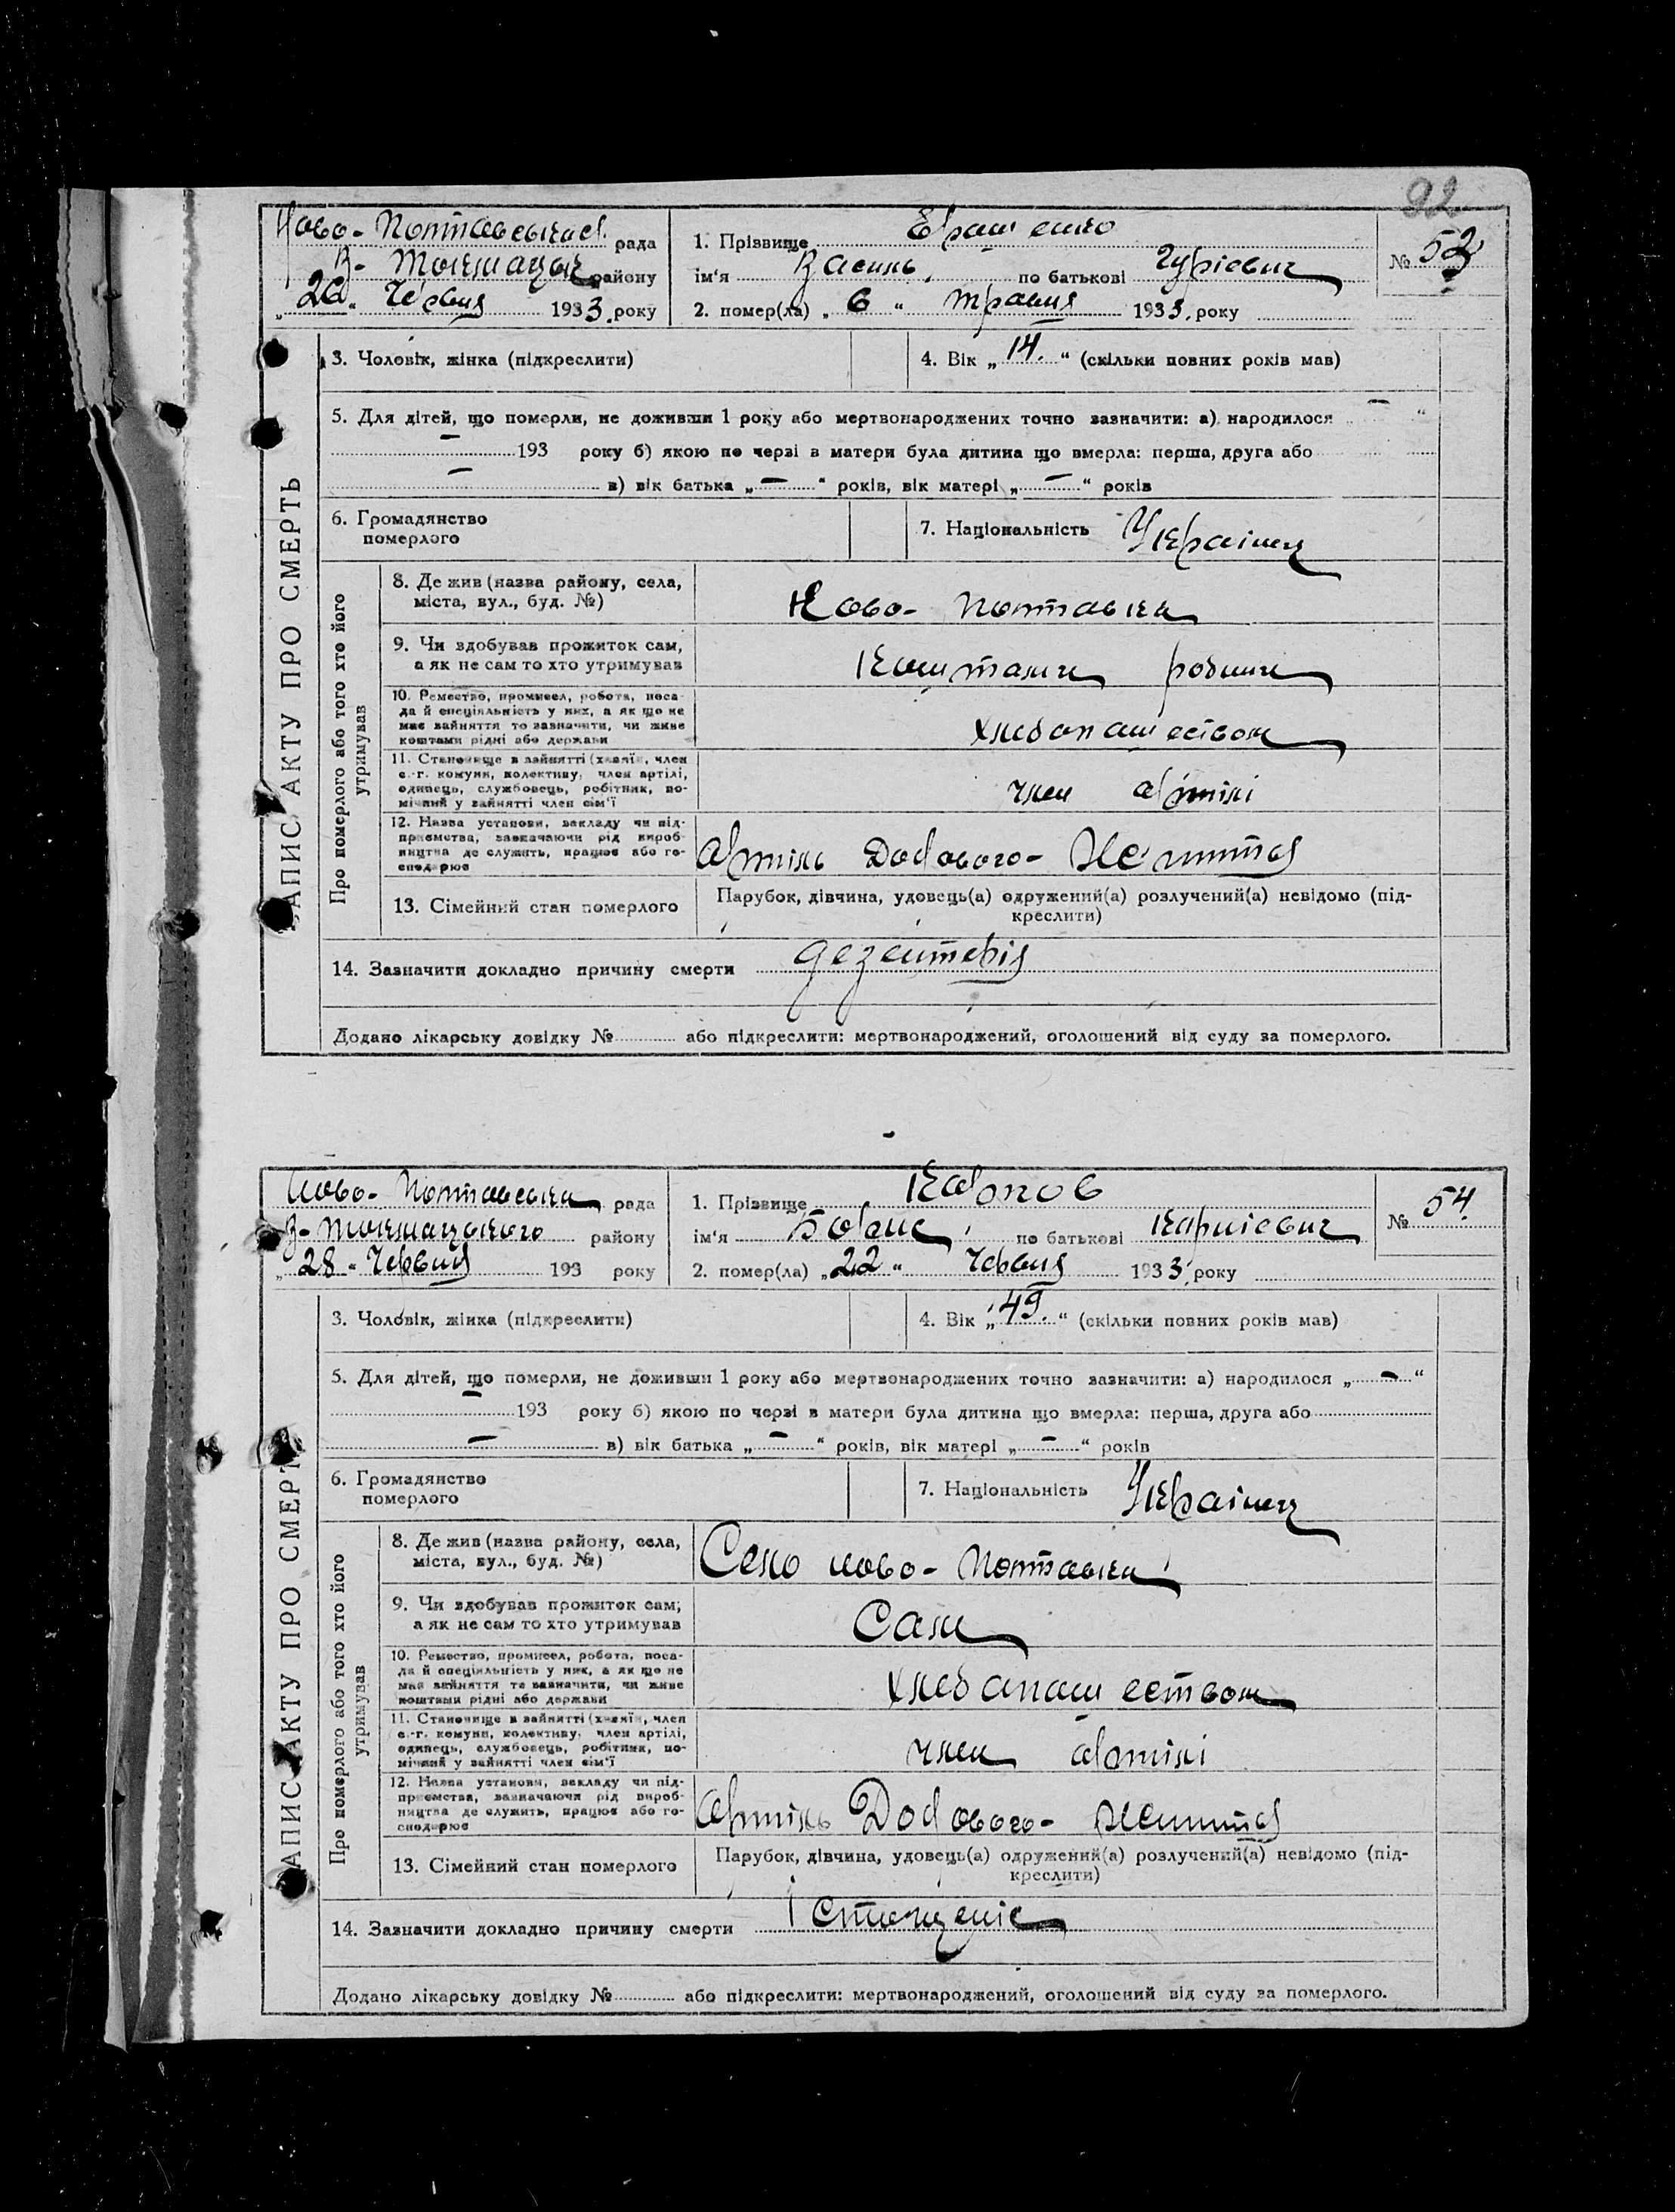 92
Ново-Полтавська рада
В-Токмацьк району
"26" Червня 1933 року
1. Прізвище
ім'я Василь по батькові Гурієвич
2. помер(ла) „6" травня 1933 року
№ 53
ЗАПИС АКТУ ПРО СМЕРТЬ
3. Чоловік, жінка (підкреслити)
4. Вік „14." (скільки повних років мав)
5. Для дітей, що померли, не доживши 1 року або мертвонароджених точно зазначити: а) народилося „ — "
— 193 року б) якою по черзі в матери була дитина що вмерла: перша, друга або
— в) вік батька „ — " років, вік матері „ — " років
6. Громадянство
померлого
7. Національність Українец
Про померлого або того хто його
утримував
8. Де жив (назва району, села,
міста, вул., буд. №)
Ново-Полтавка
9. Чи здобував прожиток сам,
а як не сам то хто утримував
Коштами родини
10. Ремество, промисел, робота, поса-
да й спеціяльність у них, а як що не
має зайняття то зазначити, чи живе
коштами рідні або держави
хлебопашеством
11. Становище в зайнятті (хазяїн, член
с.-г. комуни, колективу, член артілі,
одинець, службовець, робітник, по-
мічний у зайнятті член сім'ї
член артілі
12. Назва установи, закладу чи під-
приємства, зазначаючи рід вироб-
ництва де служить, працює або го-
сподарює
Артіль
13. Сімейний стан померлого
Парубок, дівчина, удовець(а) одружений(а) розлучений(а) невідомо (під-
креслити)
14. Зазначити докладно причину смерти дезентерія
Додано лікарську довідку № або підкреслити: мертвонароджений, оголошений від суду за померлого.
Ново-Полтавська рада
В-Токмацького району
"28" Червня 193 року
1. Прізвище Карпов
ім'я Борис по батькові
2. помер(ла) „22" Червня 1933 року
№ 54
ЗАПИС АКТУ ПРО СМЕРТЬ
3. Чоловік, жінка (підкреслити)
4. Вік „49." (скільки повних років мав)
5. Для дітей, що померли, не доживши 1 року або мертвонароджених точно зазначити: а) народилося „ — "
— 193 року б) якою по черзі в матери була дитина що вмерла: перша, друга або
— в) вік батька „ — " років, вік матері „ — " років
6. Громадянство
померлого
7. Національність Українец
Про померлого або того хто його
утримував
8. Де жив (назва району, села,
міста, вул., буд. №)
Село Ново-Полтавка
9. Чи здобував прожиток сам,
а як не сам то хто утримував
Сам
10. Ремество, промисел, робота, поса-
да й спеціяльність у них, а як що не
має зайняття то зазначити, чи живе
коштами рідні або держави
хлебапашеством
11. Становище в зайнятті (хазяїн, член
с.-г. комуни, колективу, член артілі,
одинець, службовець, робітник, по-
мічний у зайнятті член сім'ї
член артілі
12. Назва установи, закладу чи під-
приємства, зазначаючи рід вироб-
ництва де служить, працює або го-
сподарює
Артіль
13. Сімейний стан померлого
Парубок, дівчина, удовець(а) одружений(а) розлучений(а) невідомо (під-
креслити)
14. Зазначити докладно причину смерти Істощеніє
Додано лікарську довідку № або підкреслити: мертвонароджений, оголошений від суду за померлого.